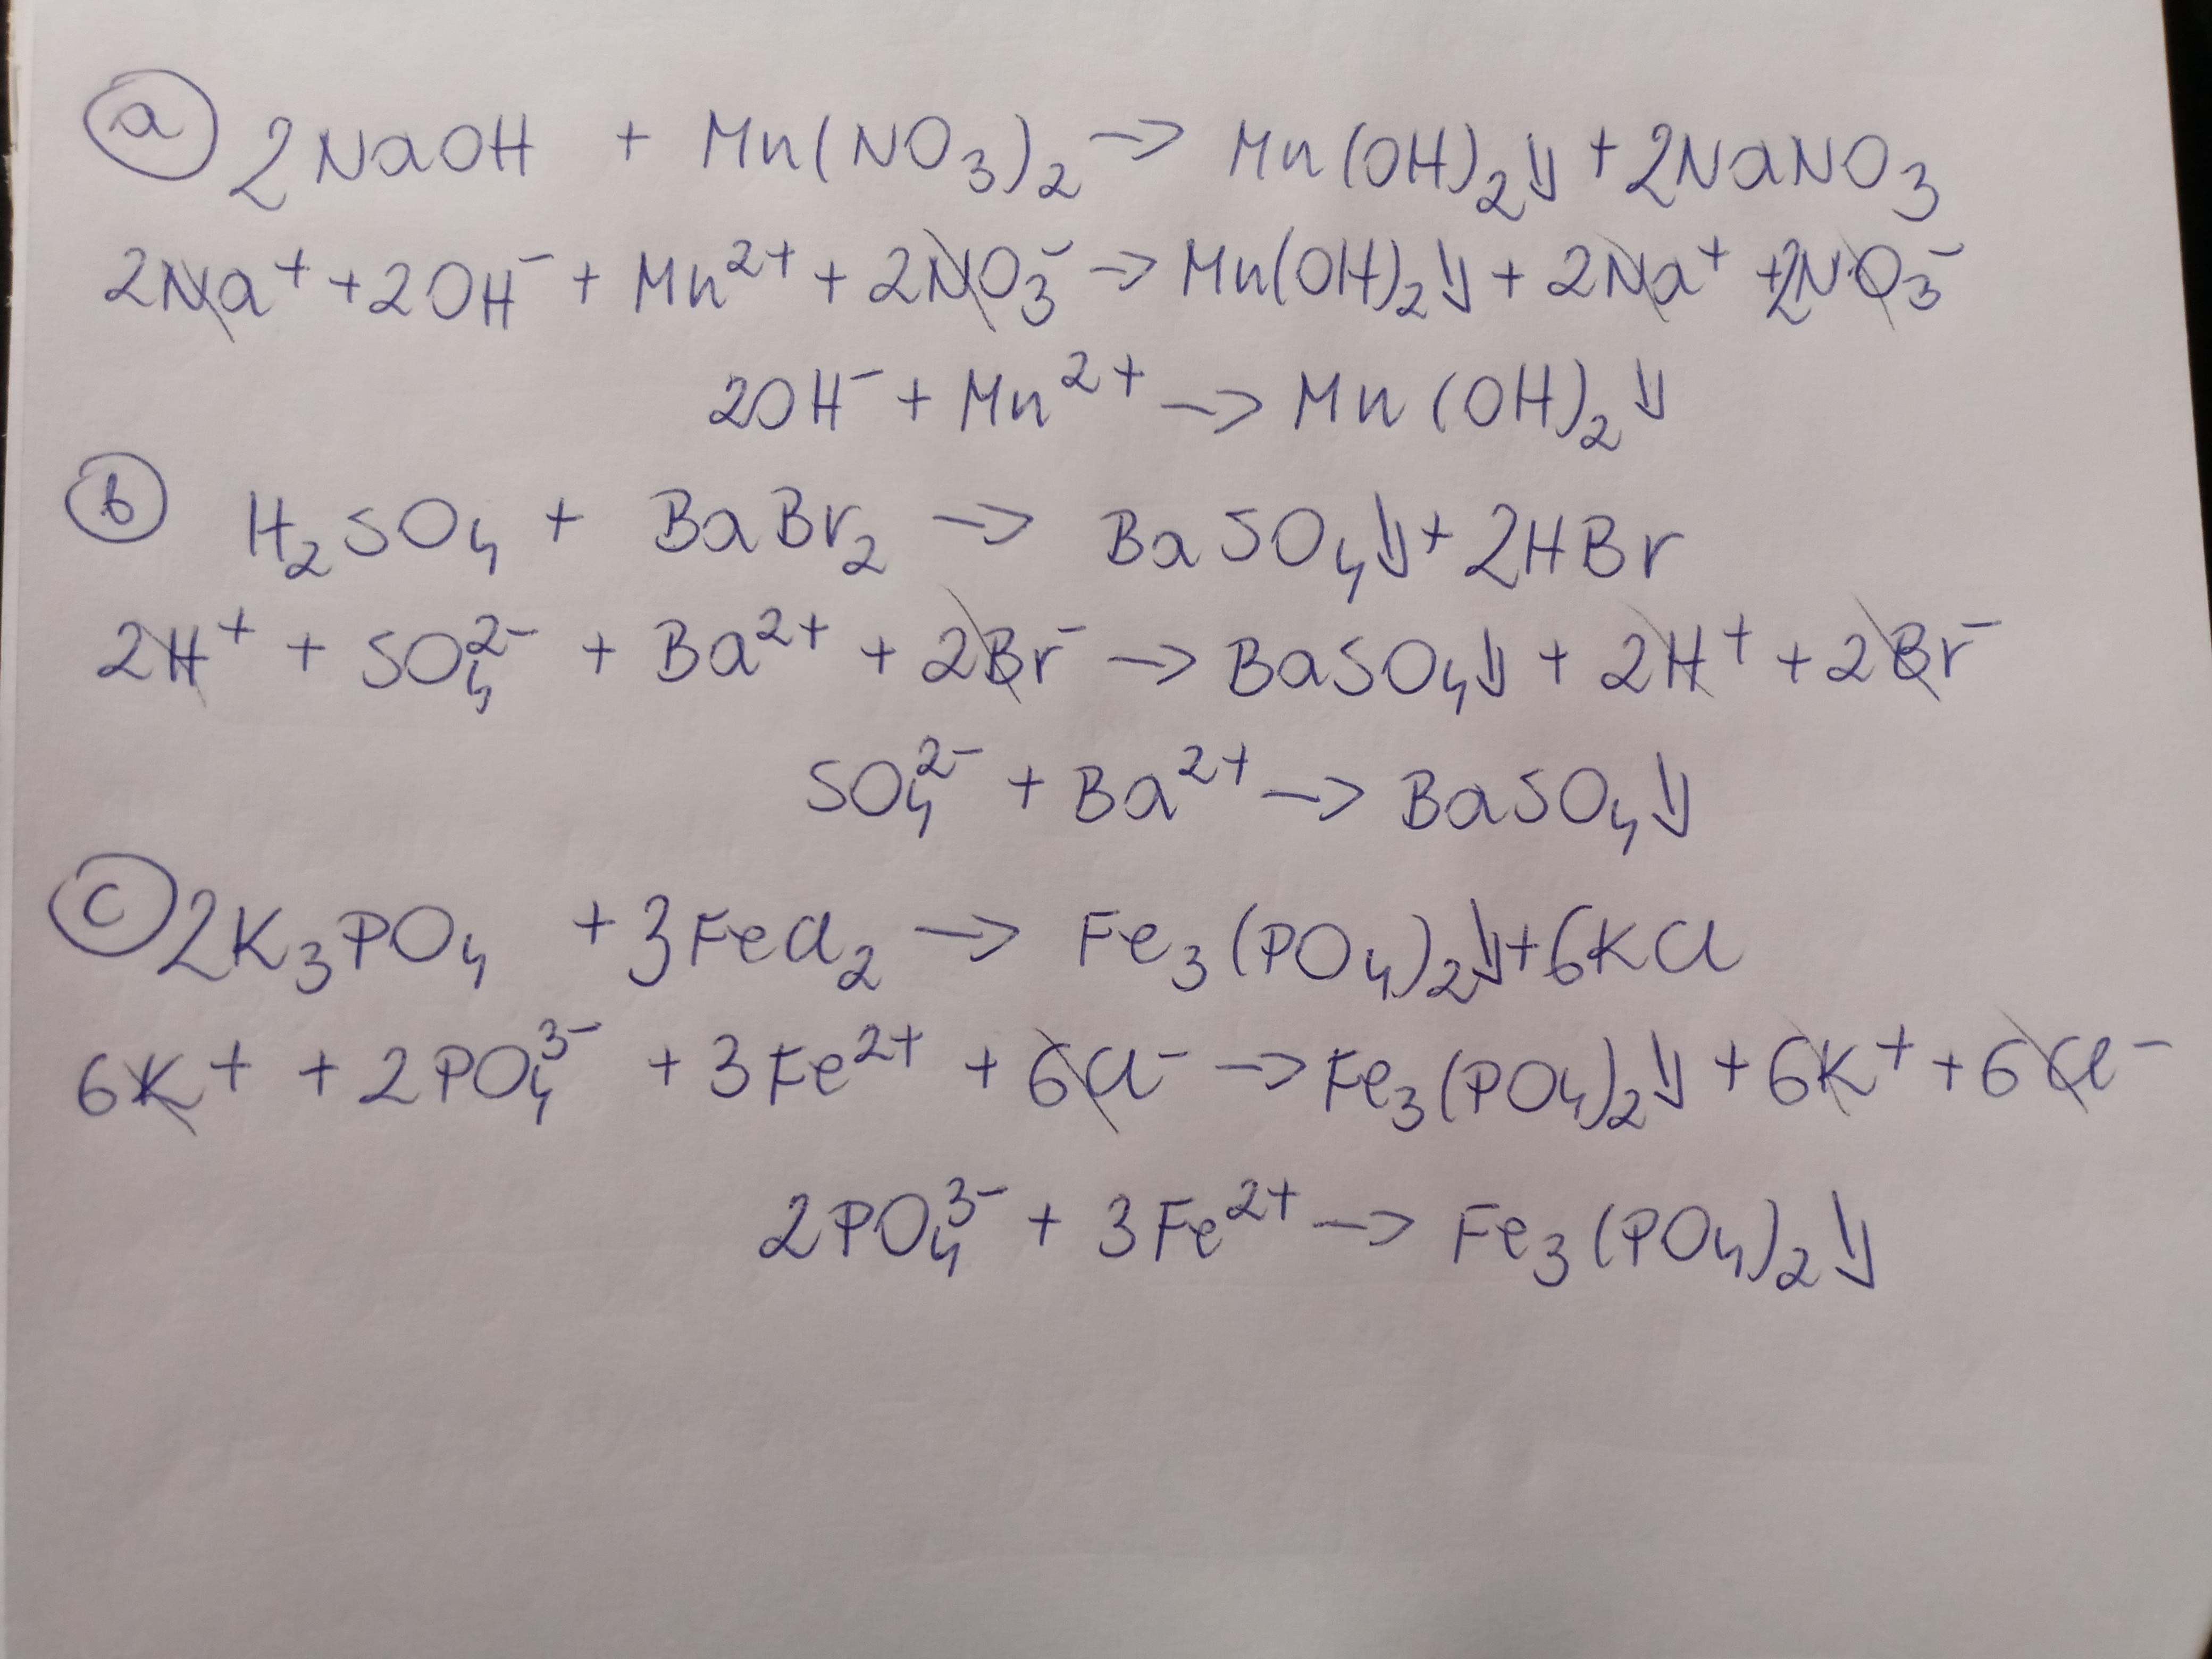 a 2NaOH + Mn(NO₃)₂ → Mn(OH)₂↓ + 2NaNO₃
2Na⁺ + 2OH⁻ + Mn²⁺ + 2NO₃⁻ → Mn(OH)₂↓ + 2Na⁺ + 2NO₃⁻
2OH⁻ + Mn²⁺ → Mn(OH)₂↓
b H₂SO₄ + BaBr₂ → BaSO₄↓ + 2HBr
2H⁺ + SO₄²⁻ + Ba²⁺ + 2Br⁻ → BaSO₄↓ + 2H⁺ + 2Br⁻
SO₄²⁻ + Ba²⁺ → BaSO₄↓
c 2K₃PO₄ + 3FeCl₂ → Fe₃(PO₄)₂↓ + 6KCl
6K⁺ + 2PO₄³⁻ + 3Fe²⁺ + 6Cl⁻ → Fe₃(PO₄)₂↓ + 6K⁺ + 6Cl⁻
2PO₄³⁻ + 3Fe²⁺ → Fe₃(PO₄)₂↓